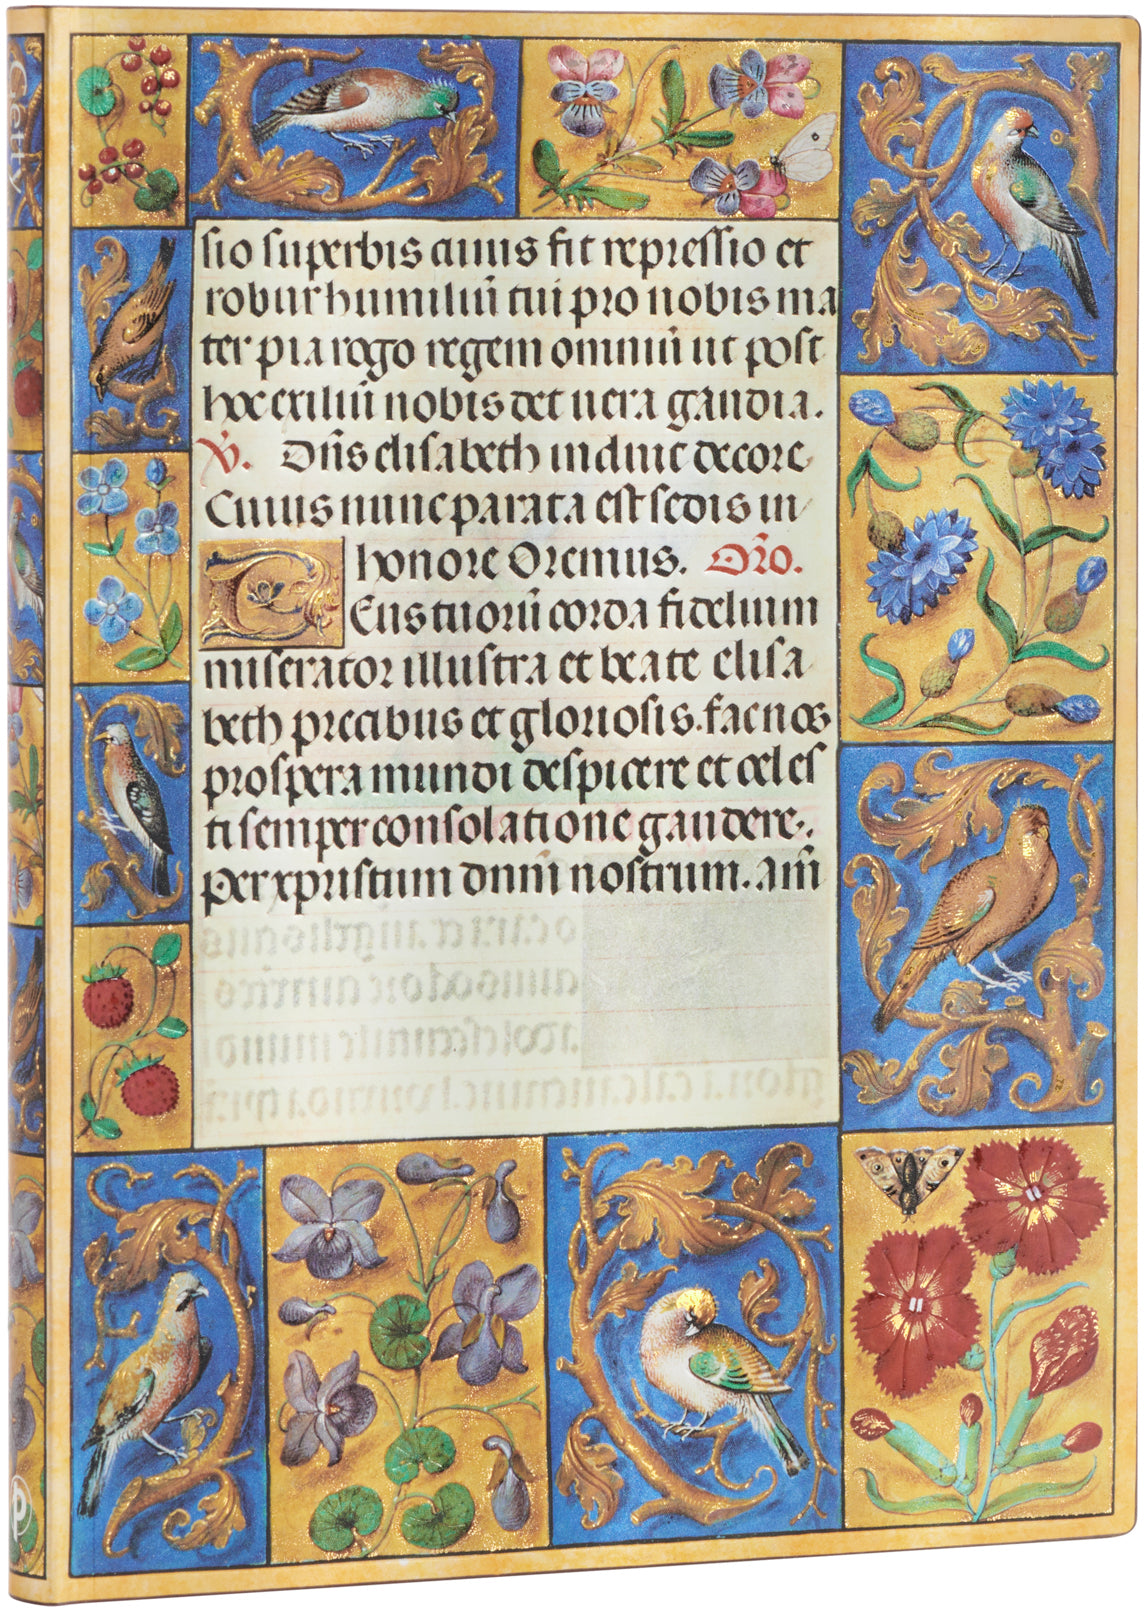 Getty
sio superbis cuius fit repressio et
robur humiliũ tui pro nobis ma
ter pia rogo regem omniũ ut post
hoc exiliũ nobis det uera gaudia.
V. Dñs elisabeth induit decore
Cuius nunc parata est sedis in
honore Oremus. Oro.
Deus tuorũ corda fidelium
miserator illustra et beate elisa
beth precibus et gloriosis. fac nos
prospera mundi despicere et celes
ti semper consolatione gaudere.
Per xpristum dnm̃ nostrum. am̃